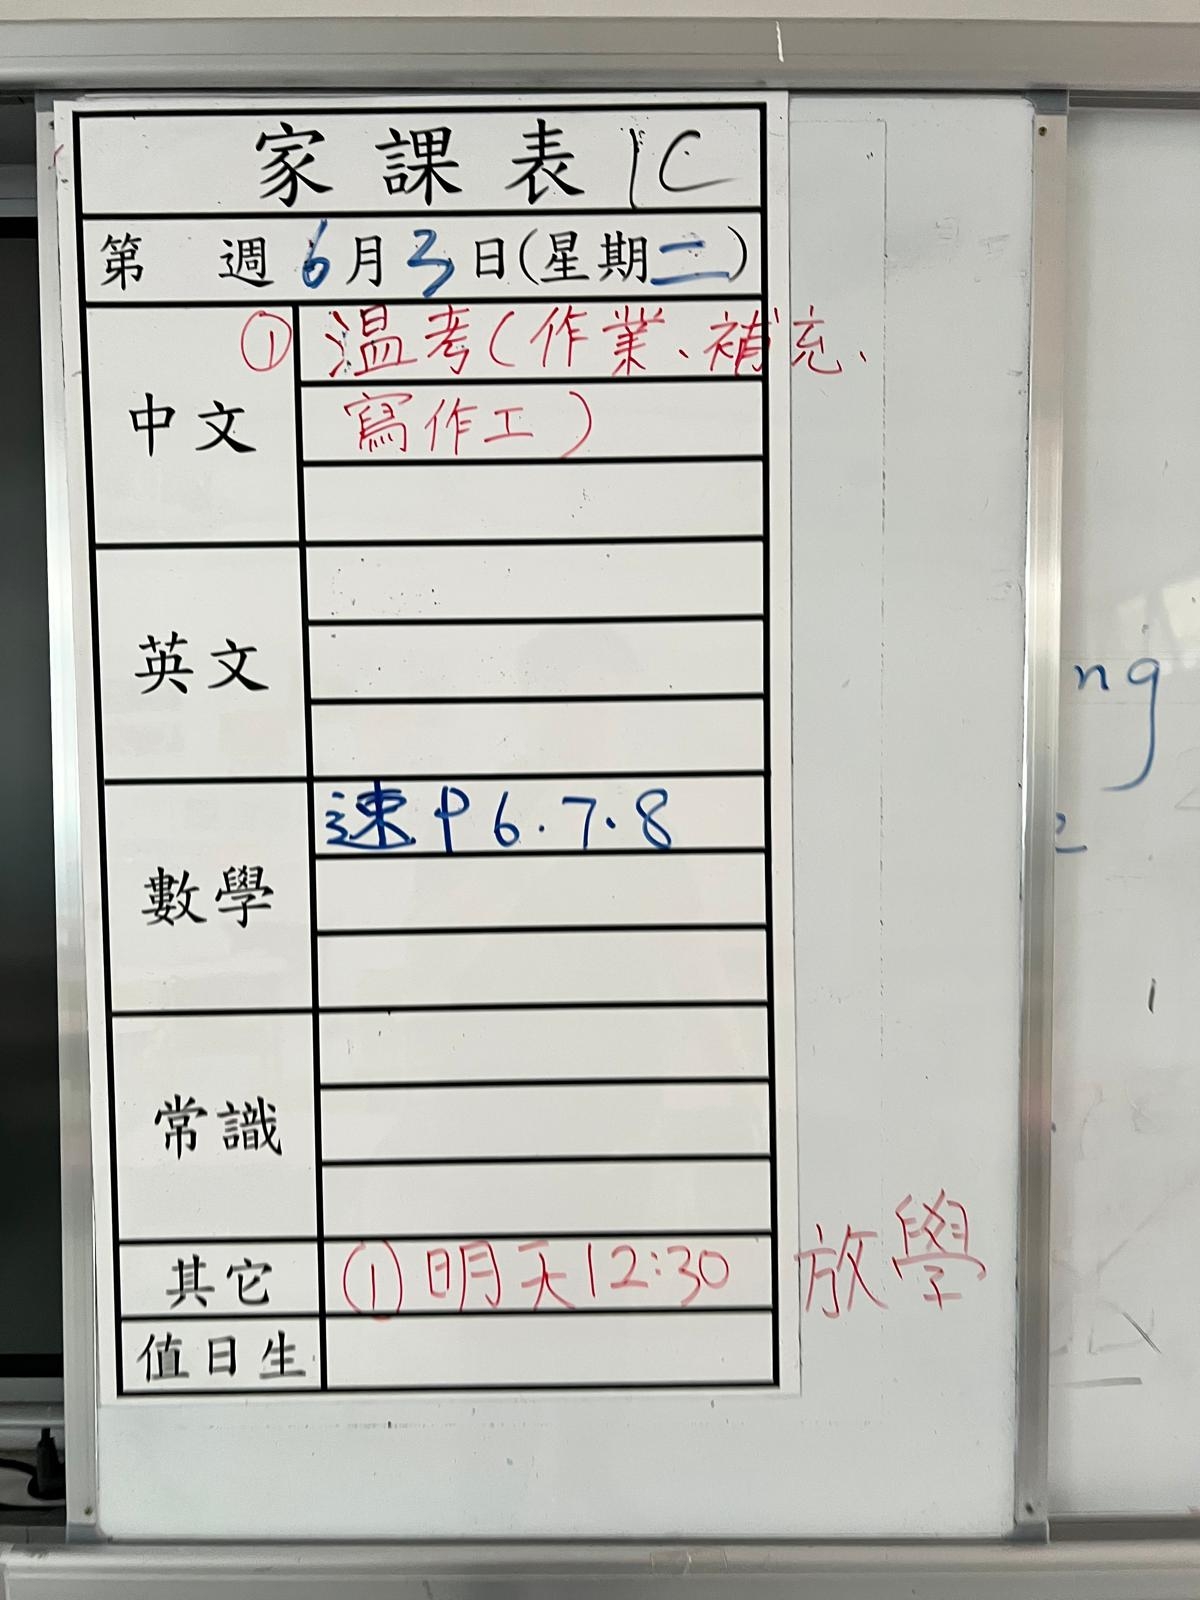 家課表 1C
第 週 6月3日(星期二)
中文
① 溫考(作業、補充、
寫作工)
英文
數學
速 P 6.7.8
常識
其它
① 明天12:30 放學
值日生
ng